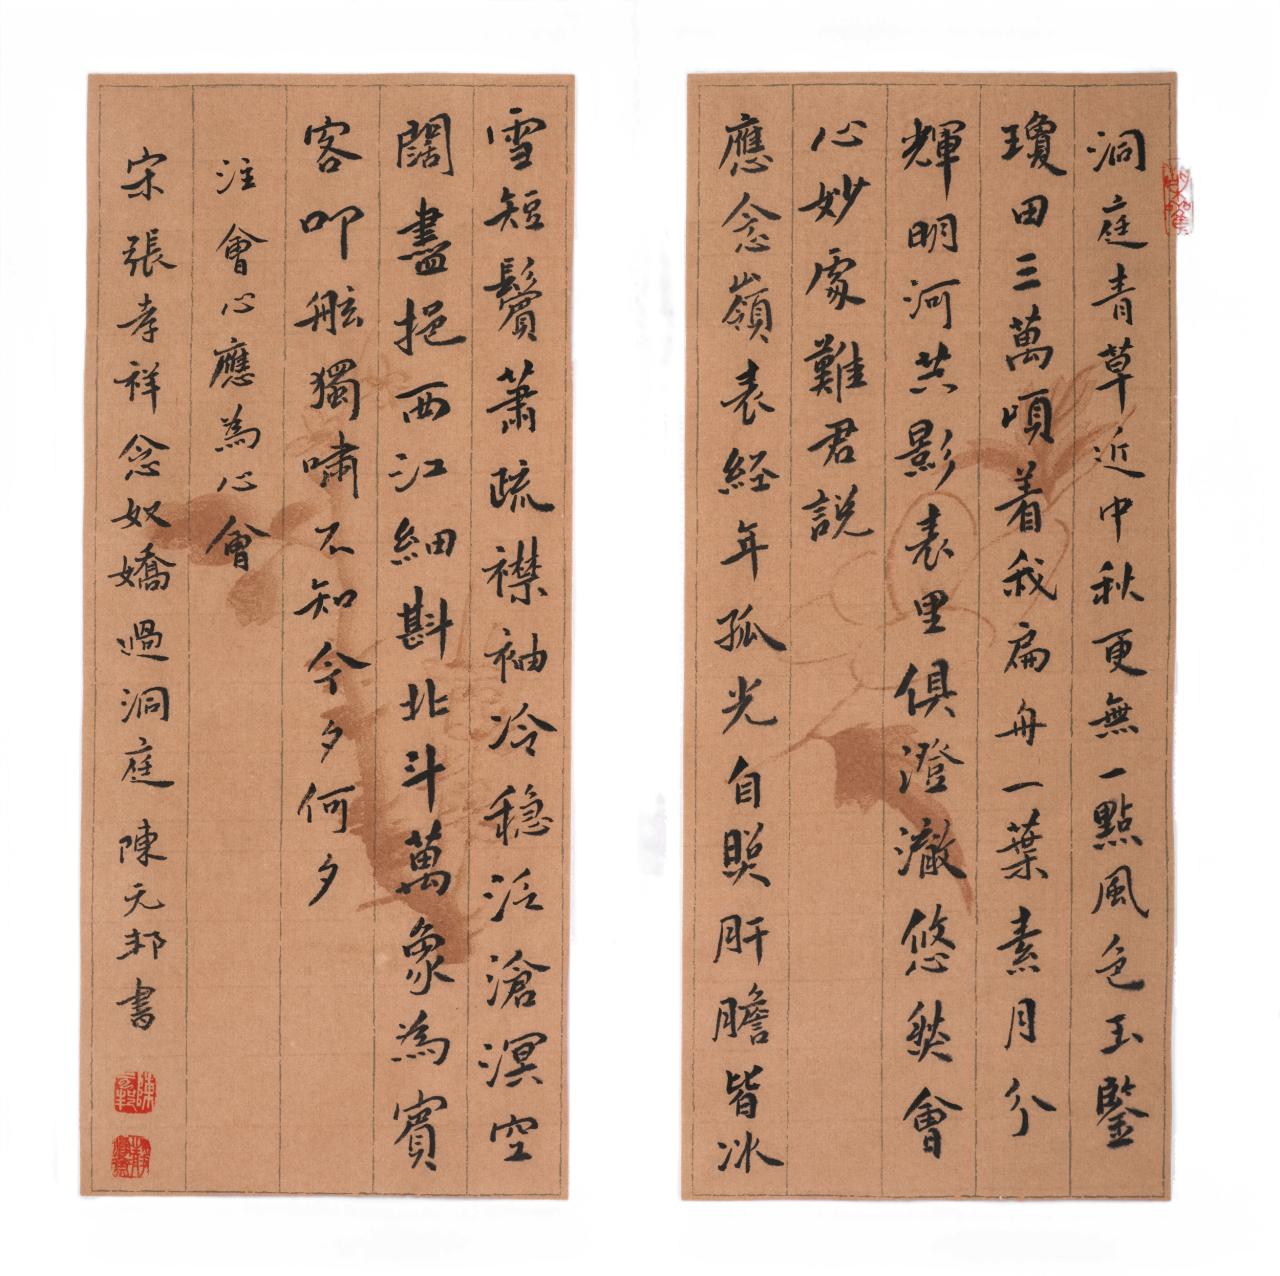 洞庭青草近中秋更無一點風色玉鑒
瓊田三萬頃着我扁舟一葉素月分
輝明河共影表里俱澄澈悠然會
心妙處難君説
應念嶺表経年孤光自照肝膽皆冰
雪短鬢蕭疏襟袖冷穏泛滄溟空
闊盡挹西江細斟北斗萬象為賓
客叩舷獨嘯不知今夕何夕
注會心應為心會
宋張孝祥念奴嬌過洞庭 陳元邦書